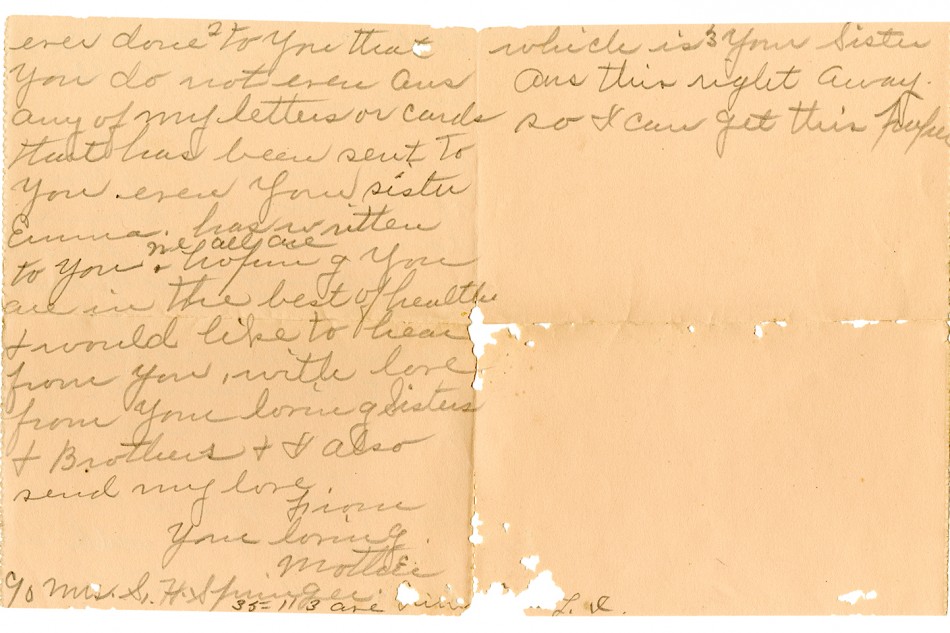 2
ever done to you that
you do not even ans
any of my letters or cards
that has been sent to
you even your sister
Emma. has written
we all are
to you . hoping you
are in the best of health
+ would like to hear
from you, with love
from your loving Sisters
+ Brothers + I also
send my love.
From
Your loving.
Mother
c/o Mrs. S. H. Springer.
35 - 113 ave
L. I.
3
which is your Sister
ans this right away.
so I can get this